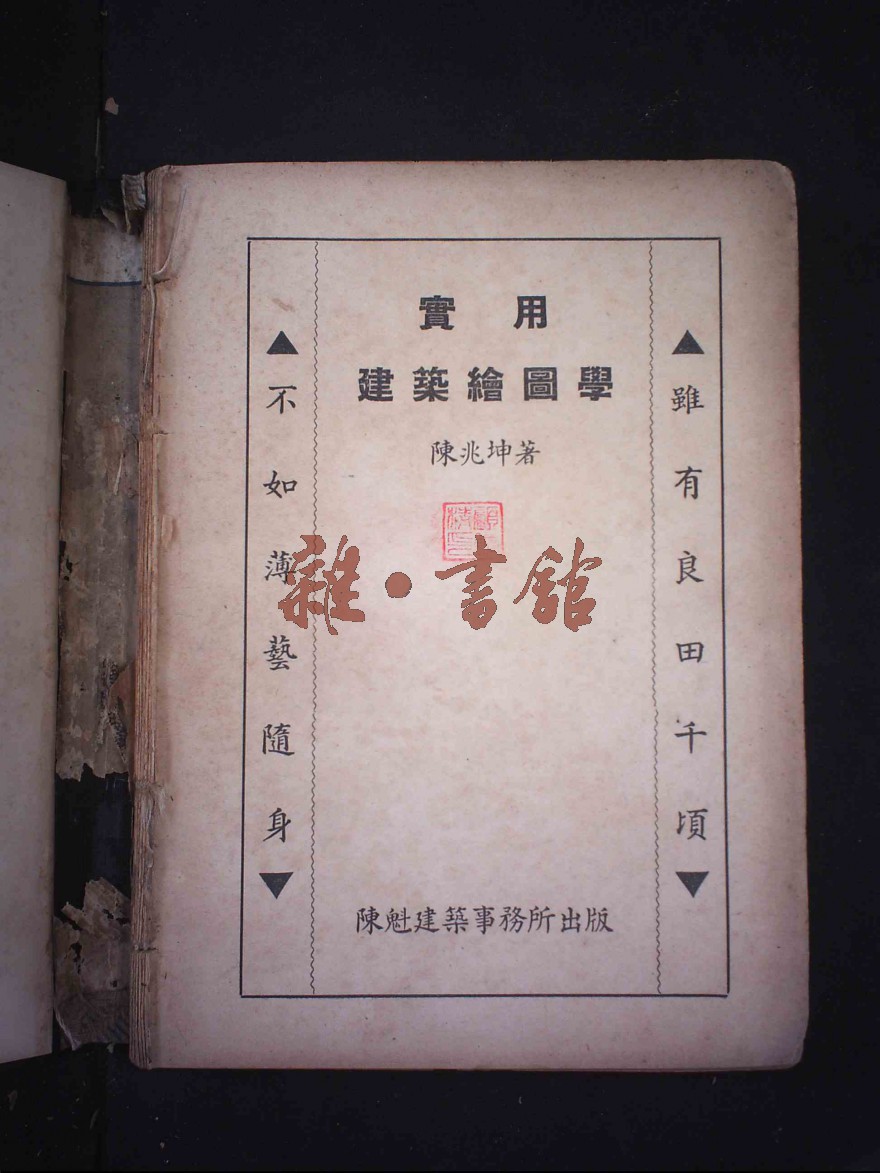 實用
建築繪圖學
陳兆坤著
▲雖有良田千頃▼
▲不如薄藝隨身▼
雜·書館
陳魁建築事務所出版